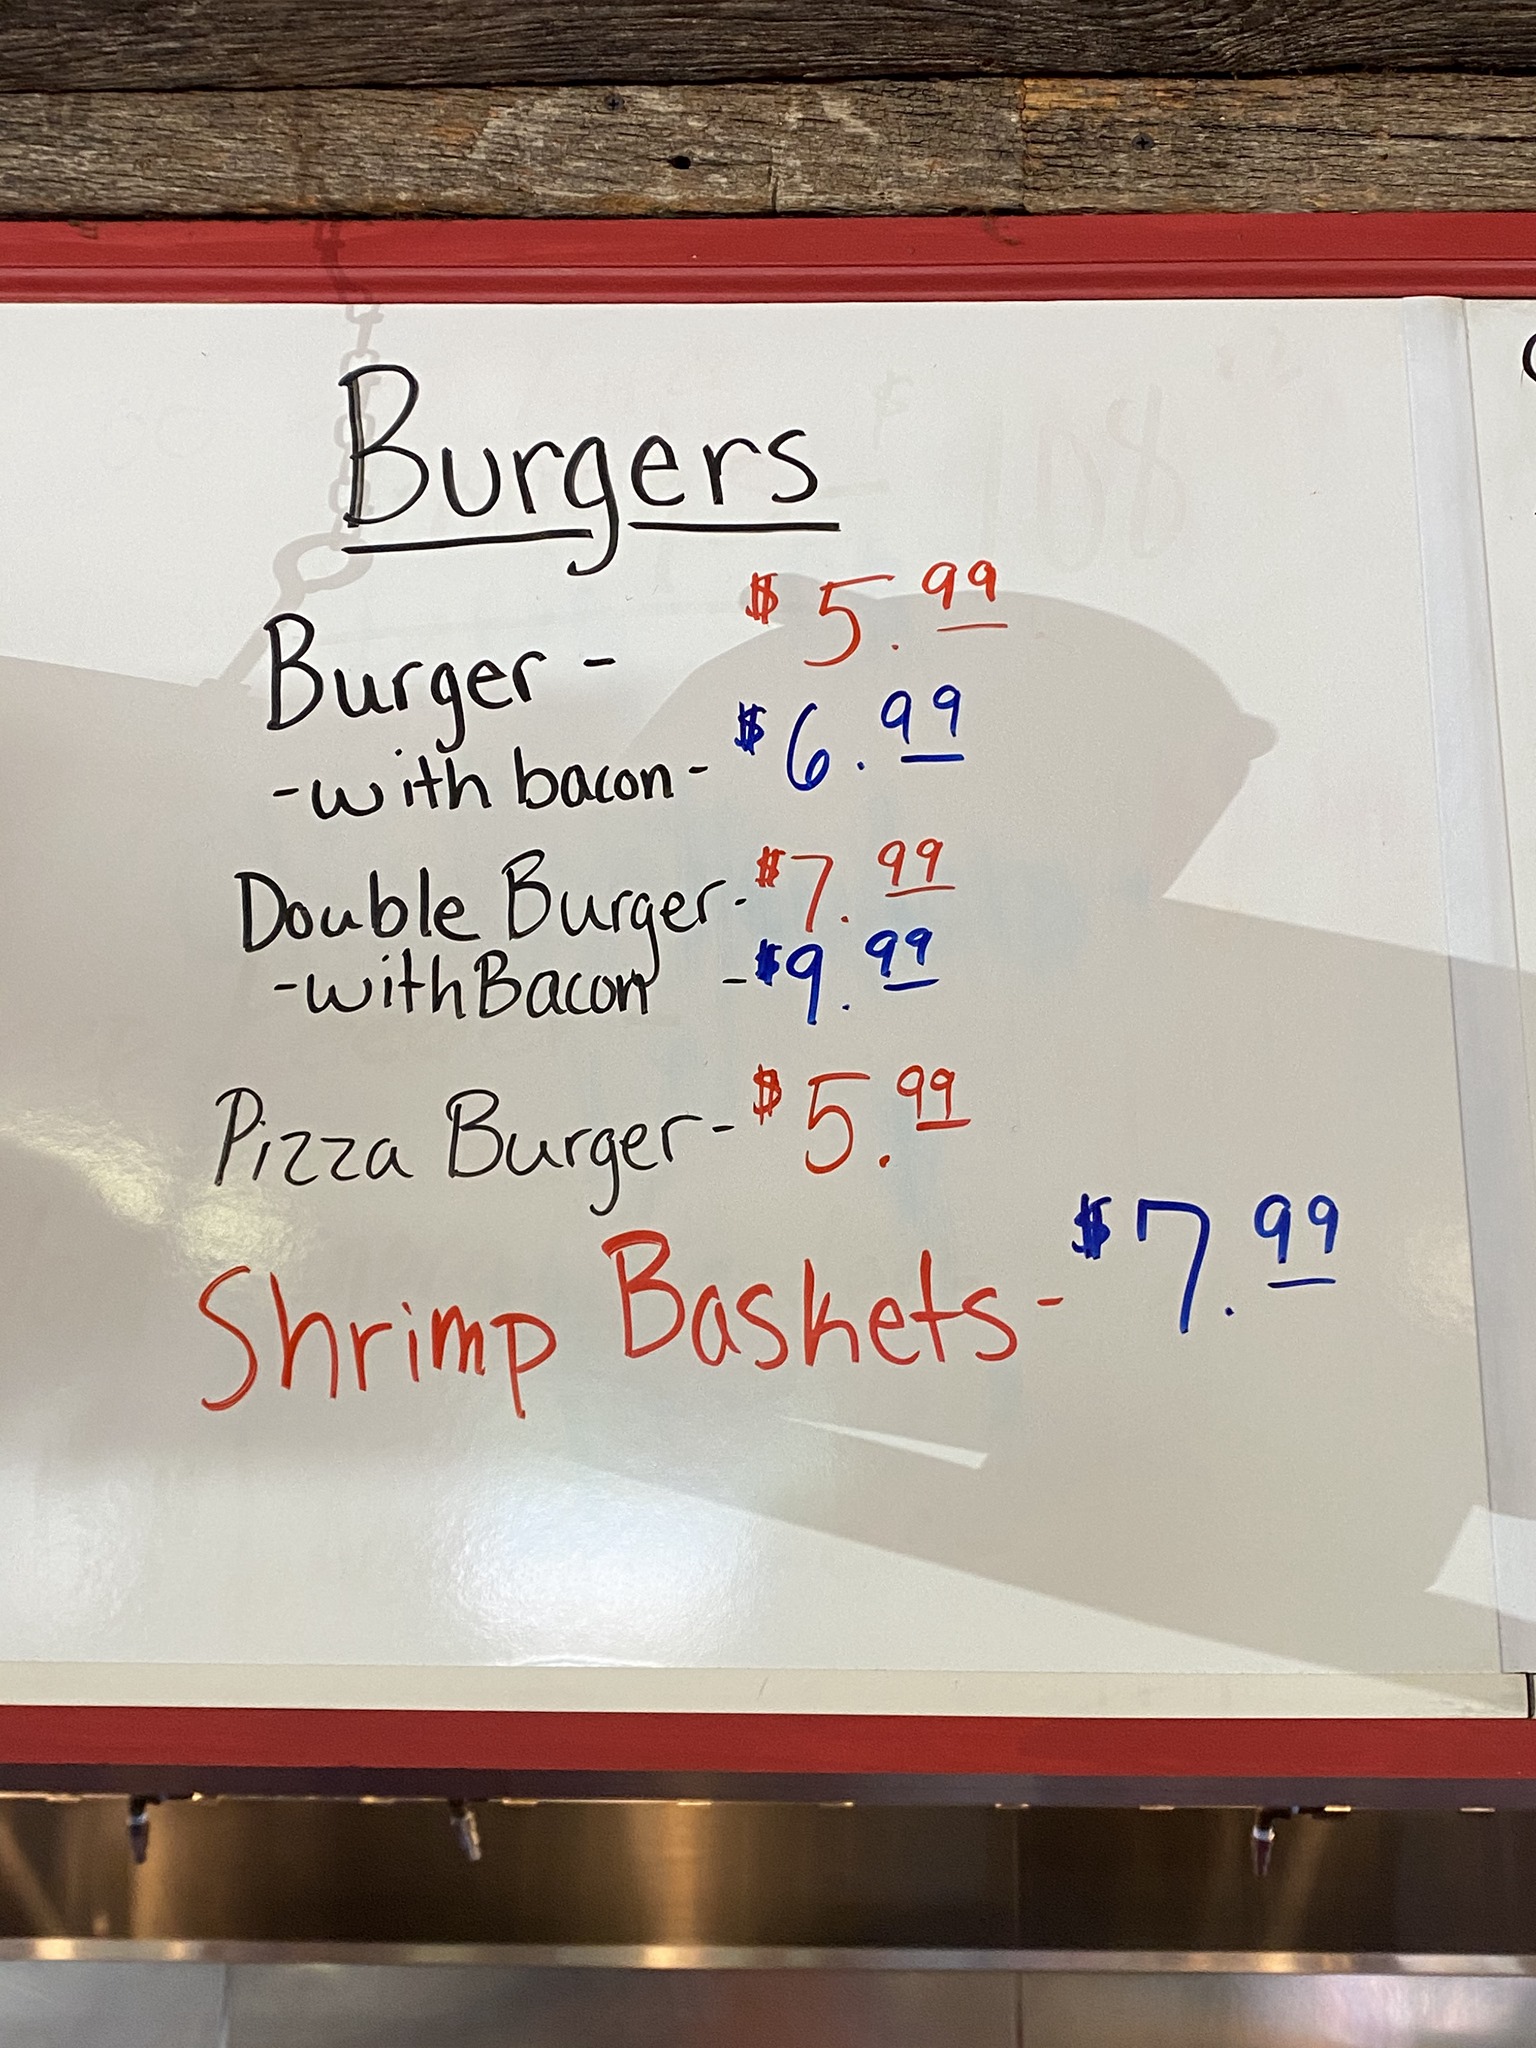 Burgers
Burger - $5.99
-with bacon- $6.99
Double Burger- $7.99
-with Bacon -$9.99
Pizza Burger- $5.99
Shrimp Baskets- $7.99